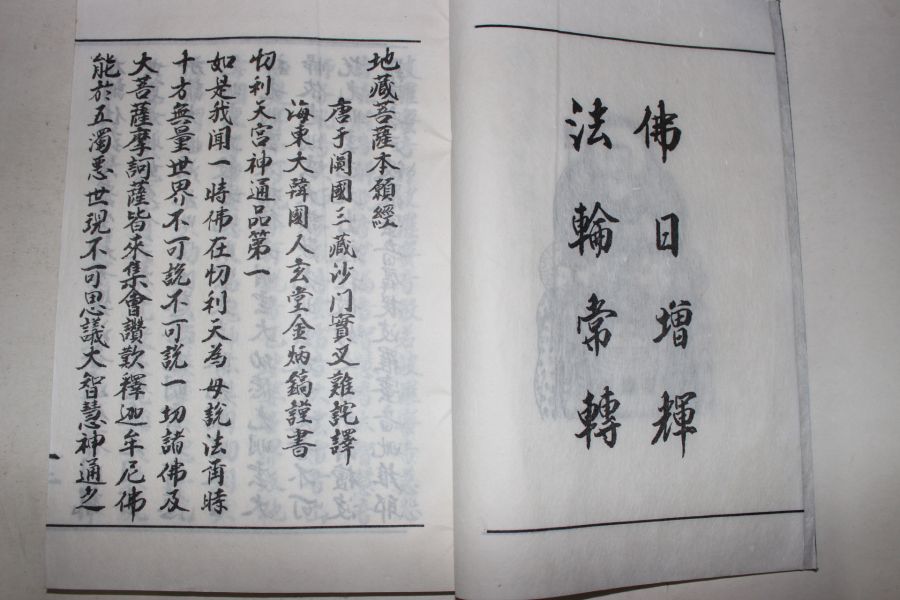 佛日增輝
法輪常轉
地藏菩薩本願經
唐于闐國三藏沙门實叉難詫譯
海東大韓國人玄堂金炳鎬謹書
忉利天宮神通品第一
如是我聞一時佛在忉利天為母說法甭時
十方無量世界不可說不可說一切諸佛及
大菩薩摩訶薩皆來集會讚歎釋迦牟尼佛
能於五濁悪世現不可思議大智慧神通之